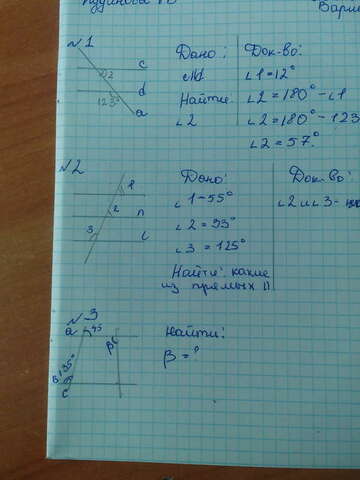 Вари
№1
c
d
a
2
123°
Дано:
Найти:
∠2
Док-во:
∠1=12°
∠2=180°-∠1
∠2=180°-123
∠2=57°
№2
1
2
n
3
l
Дано:
∠1-55°
∠2=55°
∠3=125°
Найти: какие
из прямых ||
Док-во:
∠2 и ∠3-
№3
a
45
β
135°
c
Найти:
β=?